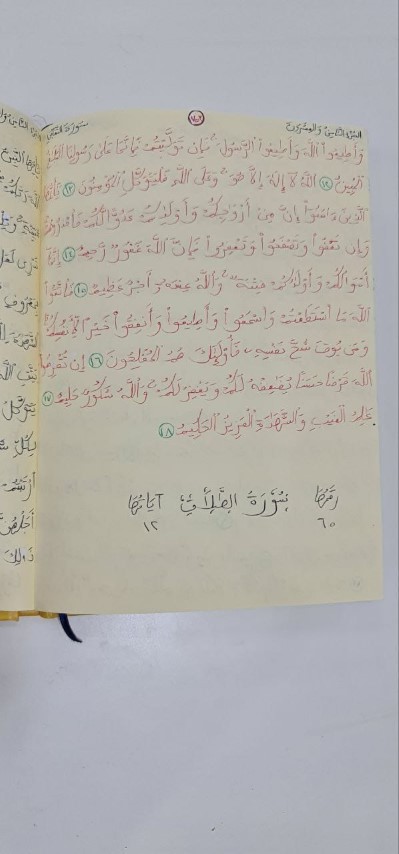 سورة التغابن
الجزء الثامن والعشرون
وَأَطِيعُوا۟ ٱللَّهَ وَأَطِيعُوا۟ ٱلرَّسُولَ فَإِن تَوَلَّيْتُمْ فَإِنَّمَا عَلَىٰ رَسُولِنَا ٱلْبَلَٰغُ
ٱلْمُبِينُ ١٢ ٱللَّهُ لَآ إِلَٰهَ إِلَّا هُوَ وَعَلَى ٱللَّهِ فَلْيَتَوَكَّلِ ٱلْمُؤْمِنُونَ ١٣ يَٰٓأَيُّهَا
ٱلَّذِينَ ءَامَنُوٓا۟ إِنَّ مِنْ أَزْوَٰجِكُمْ وَأَوْلَٰدِكُمْ عَدُوًّا لَّكُمْ فَٱحْذَرُوهُمْ
وَإِن تَعْفُوا۟ وَتَصْفَحُوا۟ وَتَغْفِرُوا۟ فَإِنَّ ٱللَّهَ غَفُورٌ رَّحِيمٌ ١٤ إِنَّمَآ
أَمْوَٰلُكُمْ وَأَوْلَٰدُكُمْ فِتْنَةٌ وَٱللَّهُ عِندَهُۥٓ أَجْرٌ عَظِيمٌ ١٥ فَٱتَّقُوا۟
ٱللَّهَ مَا ٱسْتَطَعْتُمْ وَٱسْمَعُوا۟ وَأَطِيعُوا۟ وَأَنفِقُوا۟ خَيْرًا لِّأَنفُسِكُمْ
وَمَن يُوقَ شُحَّ نَفْسِهِۦ فَأُو۟لَٰٓئِكَ هُمُ ٱلْمُفْلِحُونَ ١٦ إِن تُقْرِضُوا۟
ٱللَّهَ قَرْضًا حَسَنًا يُضَٰعِفْهُ لَكُمْ وَيَغْفِرْ لَكُمْ وَٱللَّهُ شَكُورٌ حَلِيمٌ ١٧
عَٰلِمُ ٱلْغَيْبِ وَٱلشَّهَٰدَةِ ٱلْعَزِيزُ ٱلْحَكِيمُ ١٨
رقمها سُورَةُ الطَّلَاقِ آياتها
٦٥ ١٢